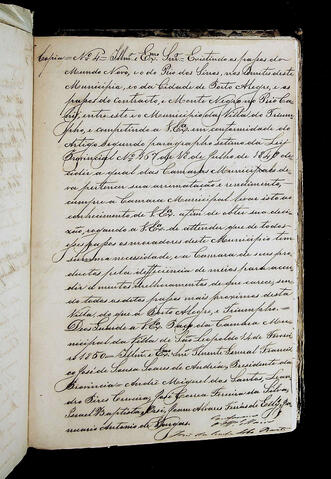 Copia = Nº 4 = Illmo e Exmo Snr = Existindo as passos do
Mundo Novo, e o do Rio dos Sinos, nos limites deste
Municipio, e o da Cidade de Porto Alegre, e as
passos do Contracto, e Monte Negro no Rio Ca
hy, entre este e o Municipio da Villa do Trium
pho, e competindo a V. Exa em conformidade do
Artigo Segundo paragrapho setimo da Ley
Provincial Nº 367 de
cidir a qual das Camaras Municipaes de
va pertencer sua arrematação e rendimento,
cumpre a Camara Municipal levar isto ao
conhecimento de V. Exa afim de obter sua deci
zão, rogando a V. Exa de attender que de todos
passos os moradores deste Municipio tem
summa necessidade, e a Camara de seus pro
ductos pela insufficiencia de meios para acu
dir a muitos melhoramentos de que carece, sen
do todos os ditos passos mais proximos desta
Villa, do que a Porto Alegre, e Triumpho.
Deos Guarde a V. Exa Paço da Camara Mu
nicipal da Villa de São Leopoldo 14 de Feverei
ro 1850 = Illmo e Exmo Snr Tenente General Francis
co José de Souza Soares de Andréa, Presidente da
Provincia = André Miguel dos Santos,
dro Pires Cerveira, José Correa Ferreira da Silva,
Baptista, João Alvares
nuario Antonio de Vargas.